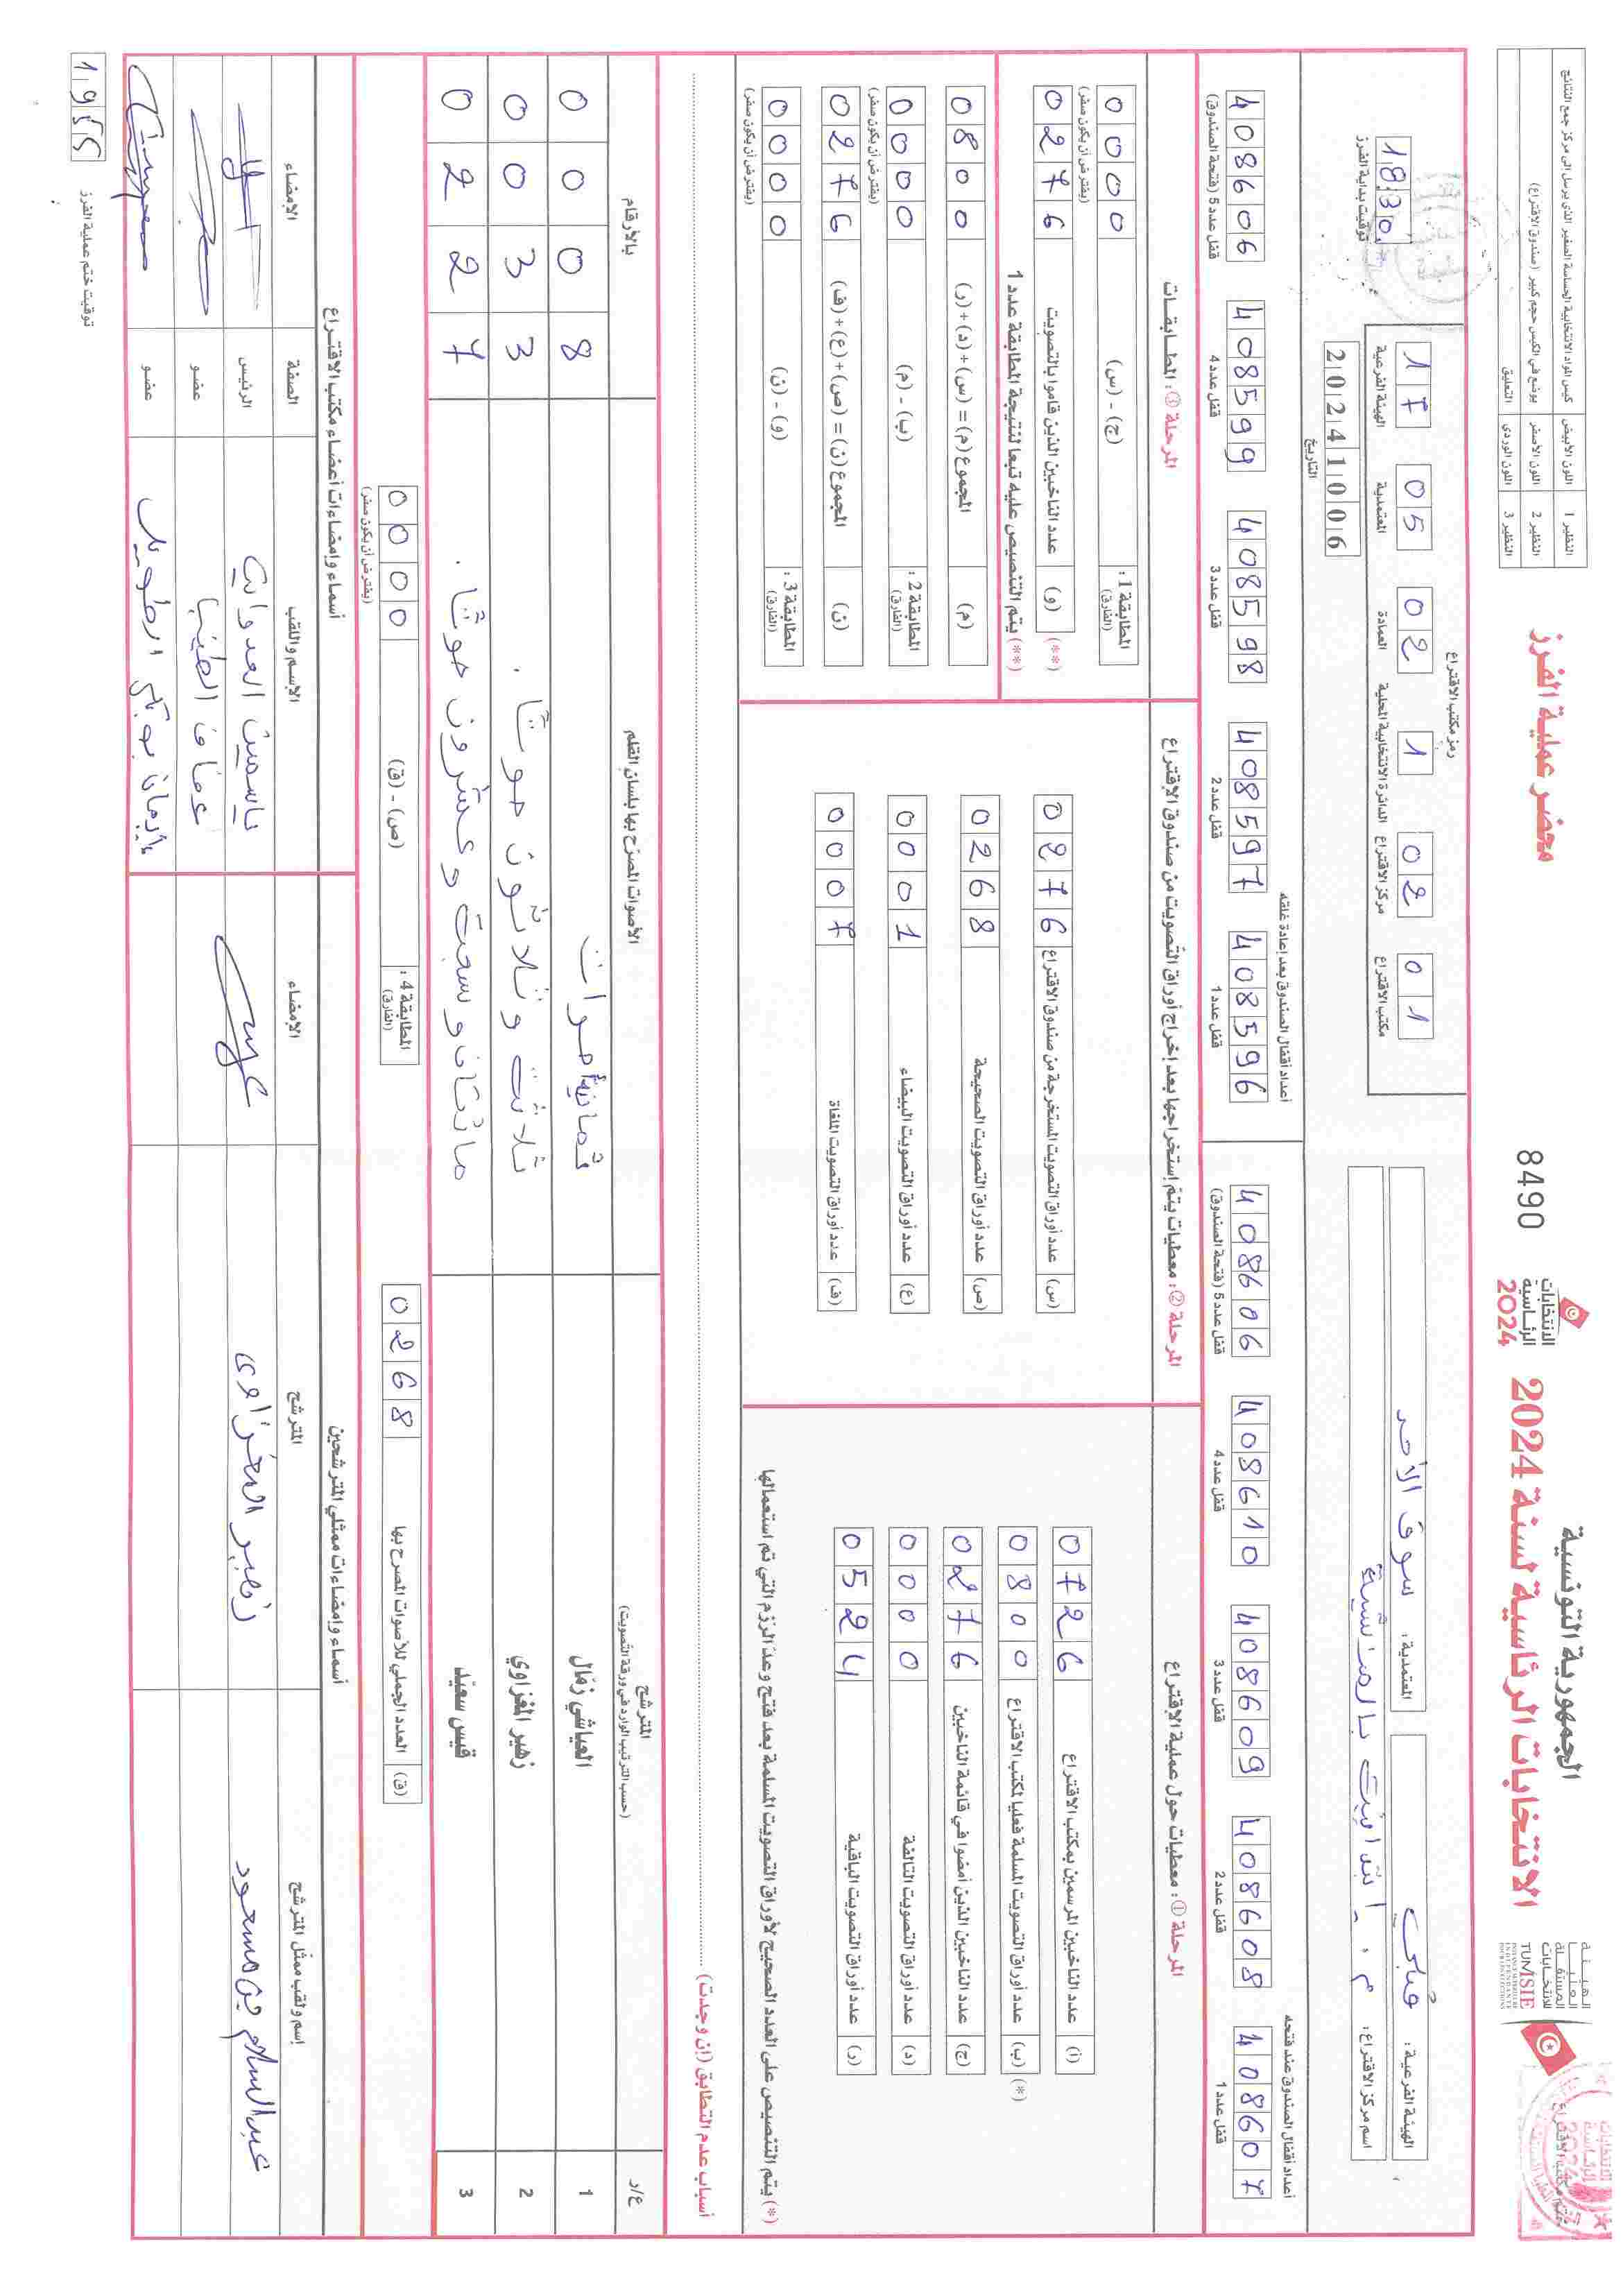 الجمهورية التونسية
الانتخابات الرئاسية لسنة 2024
الانتخابات
الرئاسية
2024
8490
محضر عملية الفرز
الهيئة
العليا
المستقلة
للانتخابات
TUNISIE
INSTANCE SUPERIEURE
INDEPENDANTE
POUR LES ELECTIONS
النظير 1 اللون الأبيض كيس المواد الانتخابية الحساسة الصغير الذي يرسل إلى مركز جمع النتائج
النظير 2 اللون الأصفر يوضع في الكيس حجم كبير (صندوق الاقتراع)
النظير 3 اللون الوردي التعليق
الهيئة الفرعية: قبلي
المعتمدية: سوق الأحد
اسم مركز الاقتراع: م. ابتدائية بالمنشية
رمز مكتب الاقتراع
01 02 1 02 05 17
مكتب الاقتراع مركز الاقتراع الدائرة الانتخابية المحلية العمادة المعتمدية الهيئة الفرعية
20241006
التاريخ
18:30
توقيت بداية الفرز
أعداد أقفال الصندوق عند فتحه
408607 408608 408609 408610 408606
قفل عدد 1 قفل عدد 2 قفل عدد 3 قفل عدد 4 قفل عدد 5 (فتحة الصندوق)
أعداد أقفال الصندوق بعد إعادة غلقه
408596 408597 408598 408599 408606
قفل عدد 1 قفل عدد 2 قفل عدد 3 قفل عدد 4 قفل عدد 5 (فتحة الصندوق)
المرحلة ①: معطيات حول عملية الاقتراع
(أ) عدد الناخبين المرسمين بمكتب الاقتراع 0726
(*) (ب) عدد أوراق التصويت المسلمة فعليا لمكتب الاقتراع 0800
(ج) عدد الناخبين الذين أمضوا في قائمة الناخبين 0276
(د) عدد أوراق التصويت التالفة 0000
(ر) عدد أوراق التصويت الباقية 0524
(*) يتم التنصيص على العدد الصحيح لأوراق التصويت المسلمة بعد فتح وعد الرزم التي تم استعمالها
المرحلة ②: معطيات يتم إستخراجها بعد إخراج أوراق التصويت من صندوق الاقتراع
(س) عدد أوراق التصويت المستخرجة من صندوق الاقتراع 0276
(ص) عدد أوراق التصويت الصحيحة 0268
(ع) عدد أوراق التصويت البيضاء 0001
(ف) عدد أوراق التصويت الملغاة 0007
المرحلة ③: المطابقات
المطابقة 1: (الفارق) (ج) - (س) 0000
(يفترض أن يكون صفر)
(**) (و) عدد الناخبين الذين قاموا بالتصويت 0276
(**) يتم التنصيص عليه تبعا لنتيجة المطابقة عدد 1
(م) المجموع (م) = (س) + (د) + (ر) 0800
المطابقة 2: (الفارق) (ب) - (م) 0000
(يفترض أن يكون صفر)
(ن) المجموع (ن) = (ص) + (ع) + (ف) 0276
المطابقة 3: (الفارق) (و) - (ن) 0000
(يفترض أن يكون صفر)
أسباب عدم التطابق (إن وجدت)
ع/ر المترشح (حسب الترتيب الوارد في ورقة التصويت) الأصوات المصرح بها بلسان القلم بالأرقام
1 العياشي زمال ثمانية أصوات 0008
2 زهير المغزاوي ثلاث وثلاثون صوتا. 0033
3 قيس سعيد مائتان وسبعة وعشرون صوتا. 0227
(ق) العدد الجملي للأصوات المصرح بها 0268
المطابقة 4: (الفارق) (ص) - (ق) 0000
(يفترض أن يكون صفر)
أسماء وإمضاءات ممثلي المترشحين
إسم ولقب ممثل المترشح المترشح الإمضاء
عبد السلام بن مسعود زهير المغزاوي
أسماء وإمضاءات أعضاء مكتب الاقتراع
الإسم واللقب الصفة الإمضاء
الرئيس
عفاف عضو
إيمان عضو
1955
توقيت ختم عملية الفرز